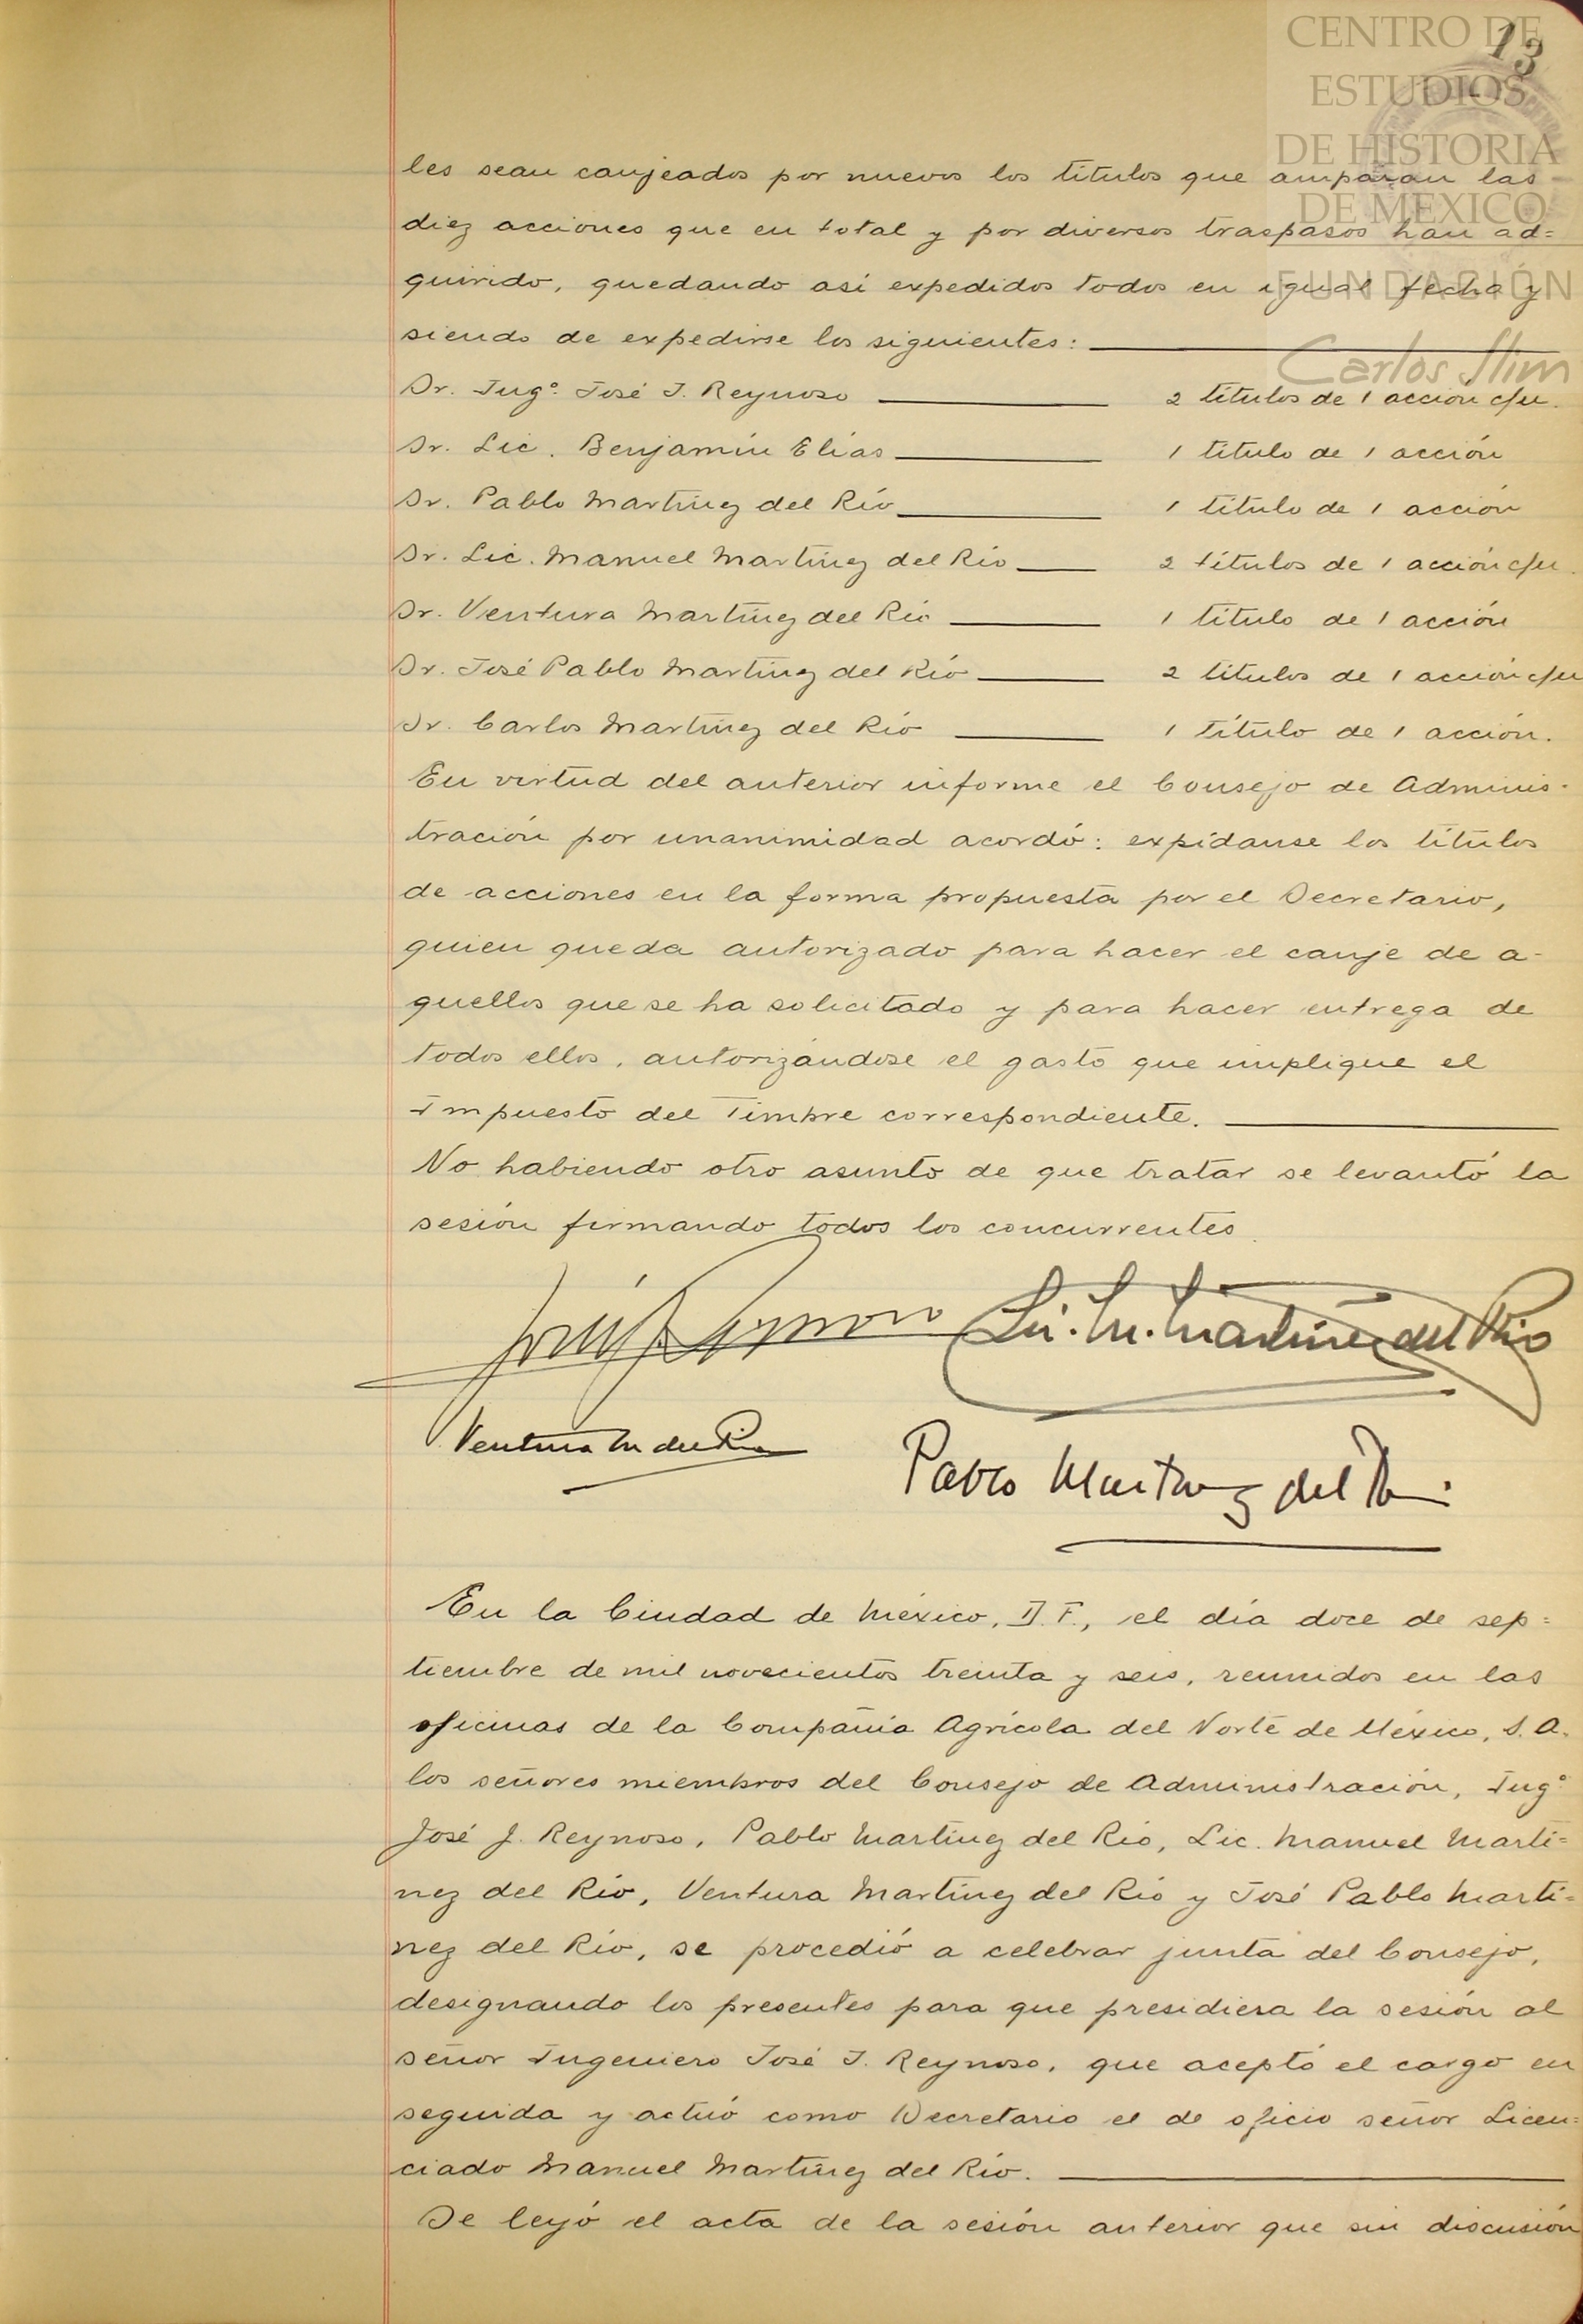 CENTRO DE
13
ESTUDIOS
DE HISTORIA
DE MEXICO
FUNDACIÓN
Carlos Slim
les sean canjeados por nuevos los títulos que amparan las
diez acciones que en total y por diversos traspasos han ad=
quirido, quedando así expedidos todos en igual fecha y
siendo de expedirse los siguientes:
Sr. Ingº. José J. Reynoso 2 títulos de 1 acción c/u.
Sr. Lic. Benjamín Elías 1 título de 1 acción
Sr. Pablo Martínez del Río 1 título de 1 acción
Sr. Lic. Manuel Martínez del Río 2 títulos de 1 acción c/u.
Sr. Ventura Martínez del Río 1 título de 1 acción
Sr. José Pablo Martínez del Río 2 títulos de 1 acción c/u
Sr. Carlos Martínez del Río 1 título de 1 acción.
En virtud del anterior informe el Consejo de Adminis-
tración por unanimidad acordó: expídanse los títulos
de acciones en la forma propuesta por el Secretario,
quien queda autorizado para hacer el canje de a-
quellos que se ha solicitado y para hacer entrega de
todos ellos, autorizándose el gasto que implique el
Impuesto del Timbre correspondiente.
No habiendo otro asunto de que tratar se levantó la
sesión firmando todos los concurrentes.
Lic. M. Martínez del Río
Ventura M del Río
Pablo Martínez del Río
En la Ciudad de México, D.F., el día doce de sep=
tiembre de mil novecientos treinta y seis, reunidos en las
oficinas de la Compañía Agrícola del Norte de México, S.A.
los señores miembros del Consejo de Administración, Ingº
José J. Reynoso, Pablo Martínez del Río, Lic. Manuel Martí=
nez del Río, Ventura Martínez del Río y José Pablo Martí=
nez del Río, se procedió a celebrar junta del Consejo,
designando los presentes para que presidiera la sesión al
señor Ingeniero José J. Reynoso, que aceptó el cargo en
seguida y actuó como Secretario el de oficio señor Licen=
ciado Manuel Martínez del Río.
Se leyó el acta de la sesión anterior que sin discusión